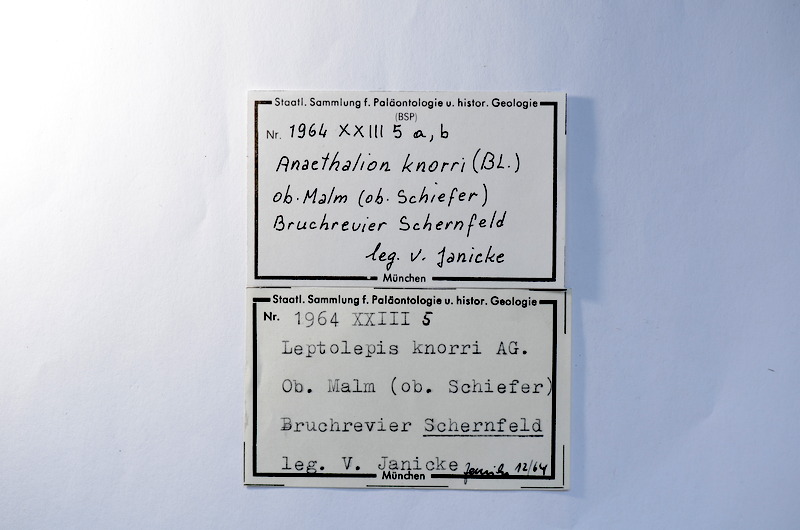 Staatl. Sammlung f. Paläontologie u. histor. Geologie
(BSP)
Nr. 1964 XXIII 5 a, b
Anaethalion knorri (BL.)
ob. Malm (ob. Schiefer)
Bruchrevier Schernfeld
leg. v. Janicke
München
Staatl. Sammlung f. Paläontologie u. histor. Geologie
Nr. 1964 XXIII 5
Leptolepis knorri AG.
Ob. Malm (ob. Schiefer)
Bruchrevier Schernfeld
leg. V. Janicke 12/64
München